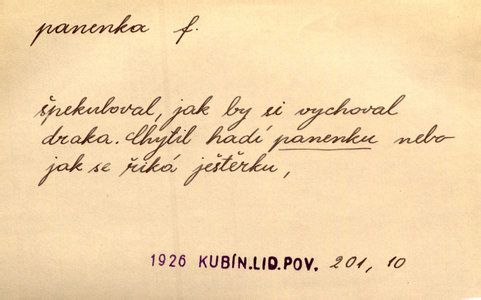 panenka f.
špekuloval, jak by si vychoval
draka. Chytil hadí panenku nebo
jak se řiká ještěrku,
1926 KUBÍN.LID.POV. 201, 10